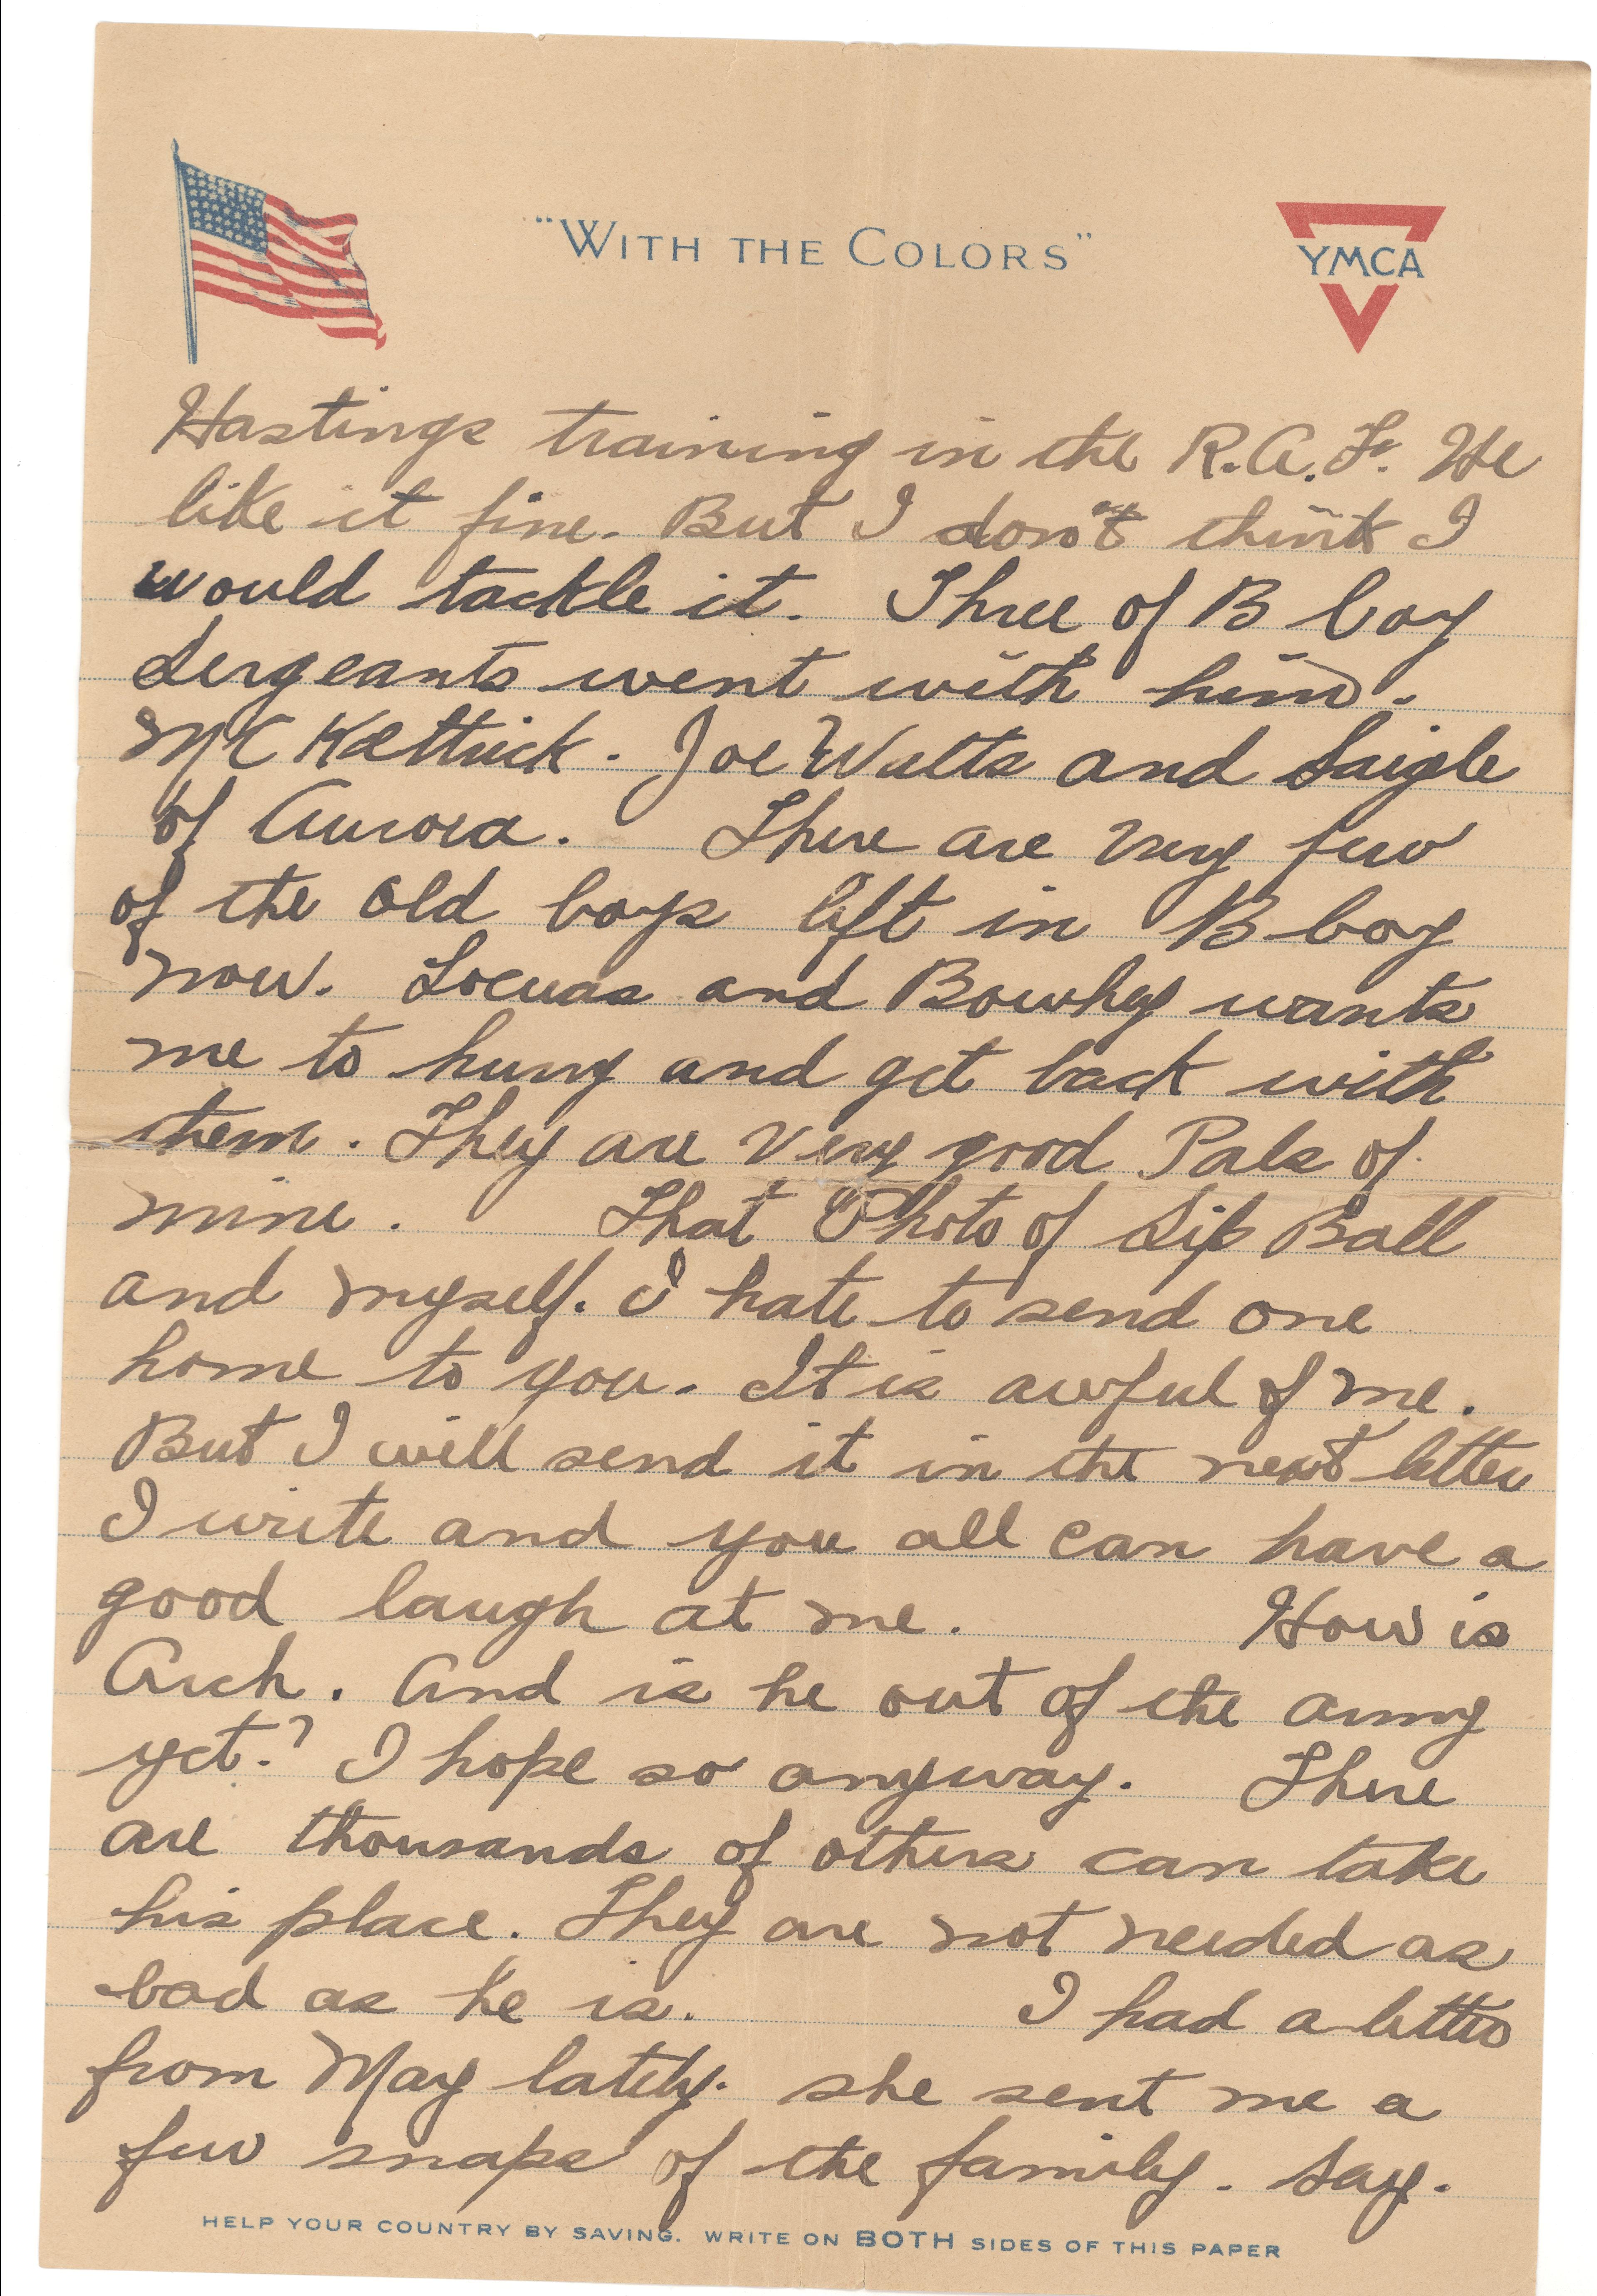 "WITH THE COLORS"
YMCA
Hastings training in the R.A.F. He
like it fine. But I don't think I
would tackle it. Three of B Coy
Sergeants went with him.
McKettrick. Joe Watts and Saigle
of Aurora. There are very few
of the old boys left in B Coy
now. Locuas and Bowhey wants
me to hurry and get back with
them. They are very good Pals of
mine. That Photo of Sip Ball
and myself. I hate to send one
home to you. It is awful of me.
But I will send it in the next letter
I write and you all can have a
good laugh at me. How is
Arch. And is he out of the army
yet.? I hope so anyway. There
are thousands of others can take
his place. They are not needed as
bad as he is. I had a letter
from May lately. she sent me a
few snaps of the family. Say.
HELP YOUR COUNTRY BY SAVING. WRITE ON BOTH SIDES OF THIS PAPER